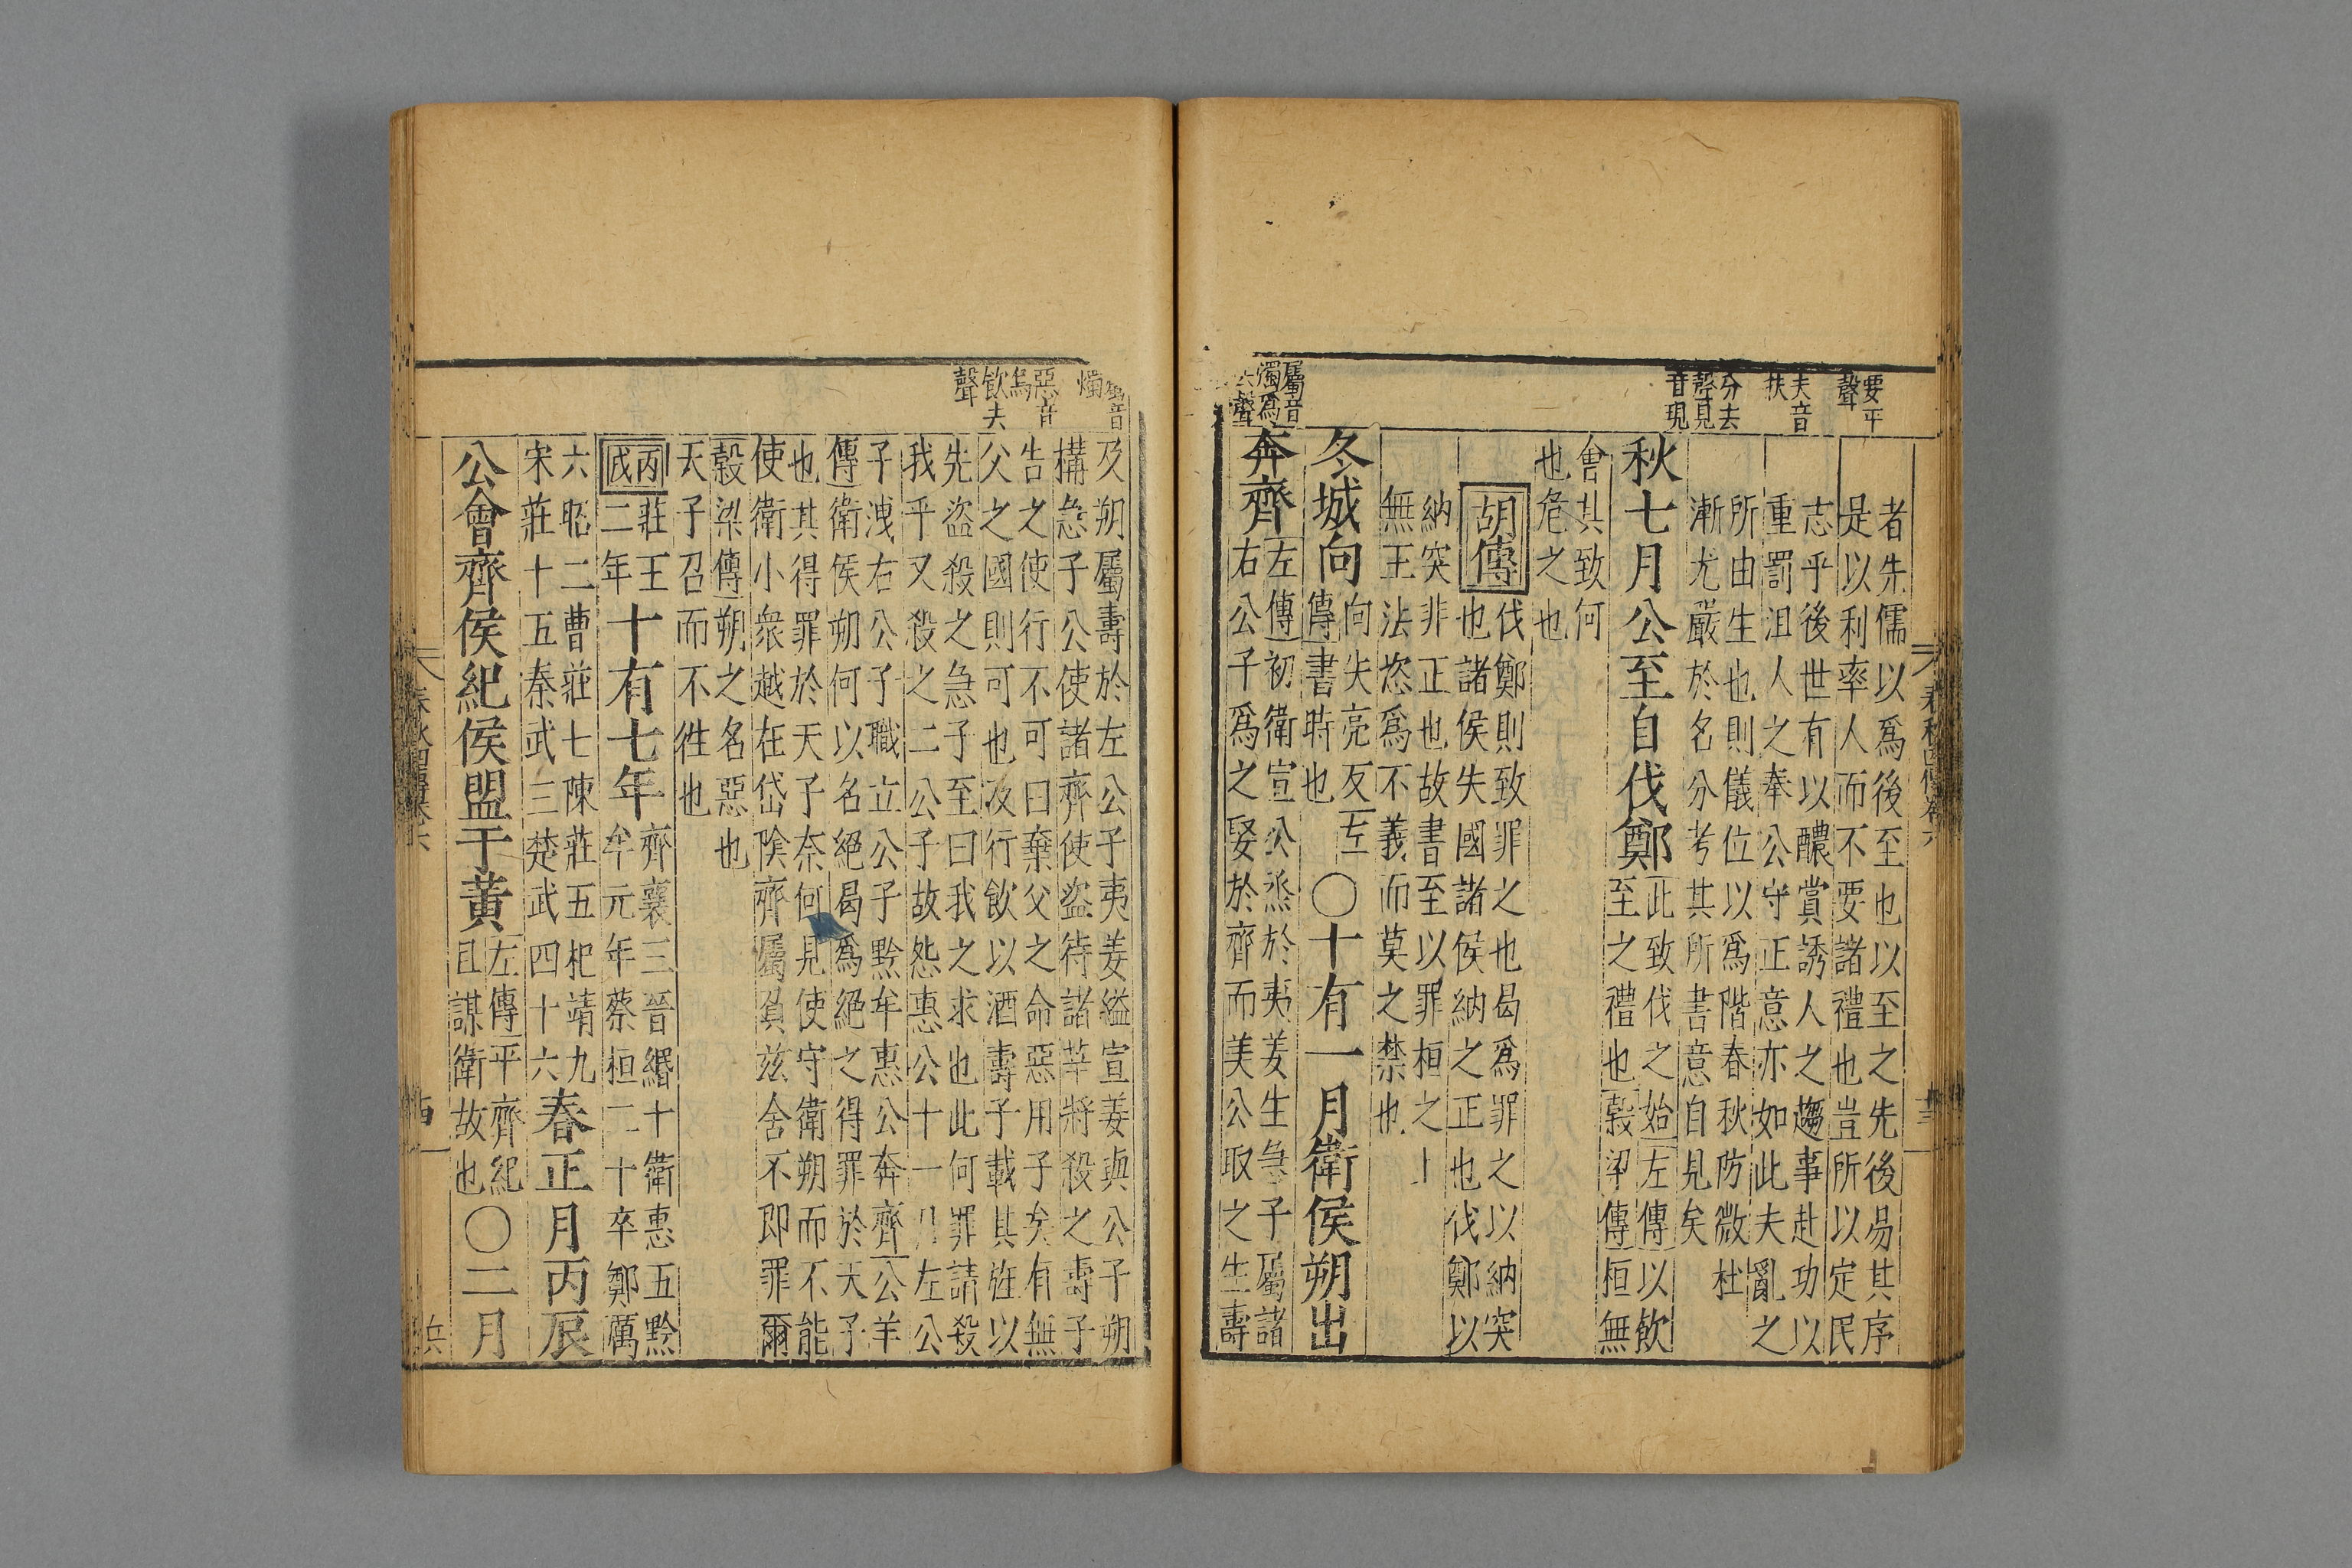 要平
聲
夫音
扶
分去
聲見
音現
屬音
燭爲
者先儒以爲後至也以至之先後易其序
是以利率人而不要諸禮也豈所以定民
志乎後世有以醲賞誘人之趨事赴功以
重罰沮人之奉公守正意亦如此夫亂之
所由生也則儀位以爲階春秋防微杜
漸尤嚴於名分考其所書意自見矣
秋七月公至自伐鄭
此致伐之始左傳以飲
至之禮也穀梁傳桓無
會其致何
也危之也
胡傳
伐鄭則致罪之也曷爲罪之以納突
也諸侯失國諸侯納之正也伐鄭以
納突非正也故書至以罪桓之上
無王法恣爲不義而莫之禁也
冬城向
向失亮反左
傳書時也
〇十有一月衛侯朔出
奔齊
左傳初衛宣公烝於夷姜生急子屬諸
右公子爲之娶於齊而美公取之生壽
春秋四傳卷六
屬音
燭
惡音
烏
飲去
聲
及朔屬壽於左公子夷姜縊宣姜與公子朔
構急子公使諸齊使盜待諸莘將殺之壽子
告之使行不可曰棄父之命惡用子矣有無
父之國則可也及行飲以酒壽子載其旌以
先盜殺之急子至曰我之求也此何罪請殺
我乎又殺之二公子故怨惠公十一月左公
子洩右公子職立公子黔牟惠公奔齊公羊
傳衛侯朔何以名絕曷爲絕之得罪於天子
也其得罪於天子奈何見使守衛朔而不能
使衛小衆越在岱陰齊屬負茲舍不即罪爾
穀梁傳朔之名惡也
天子召而不往也
丙莊王
戌二年
十有七年
齊襄三晉緡十衛惠五黔
牟元年蔡桓二十卒鄭厲
六昭二曹莊七陳莊五杞靖九
宋莊十五秦武三楚武四十六
春正月丙辰
公會齊侯紀侯盟于黃
左傳平齊紀
且謀衛故也
〇二月